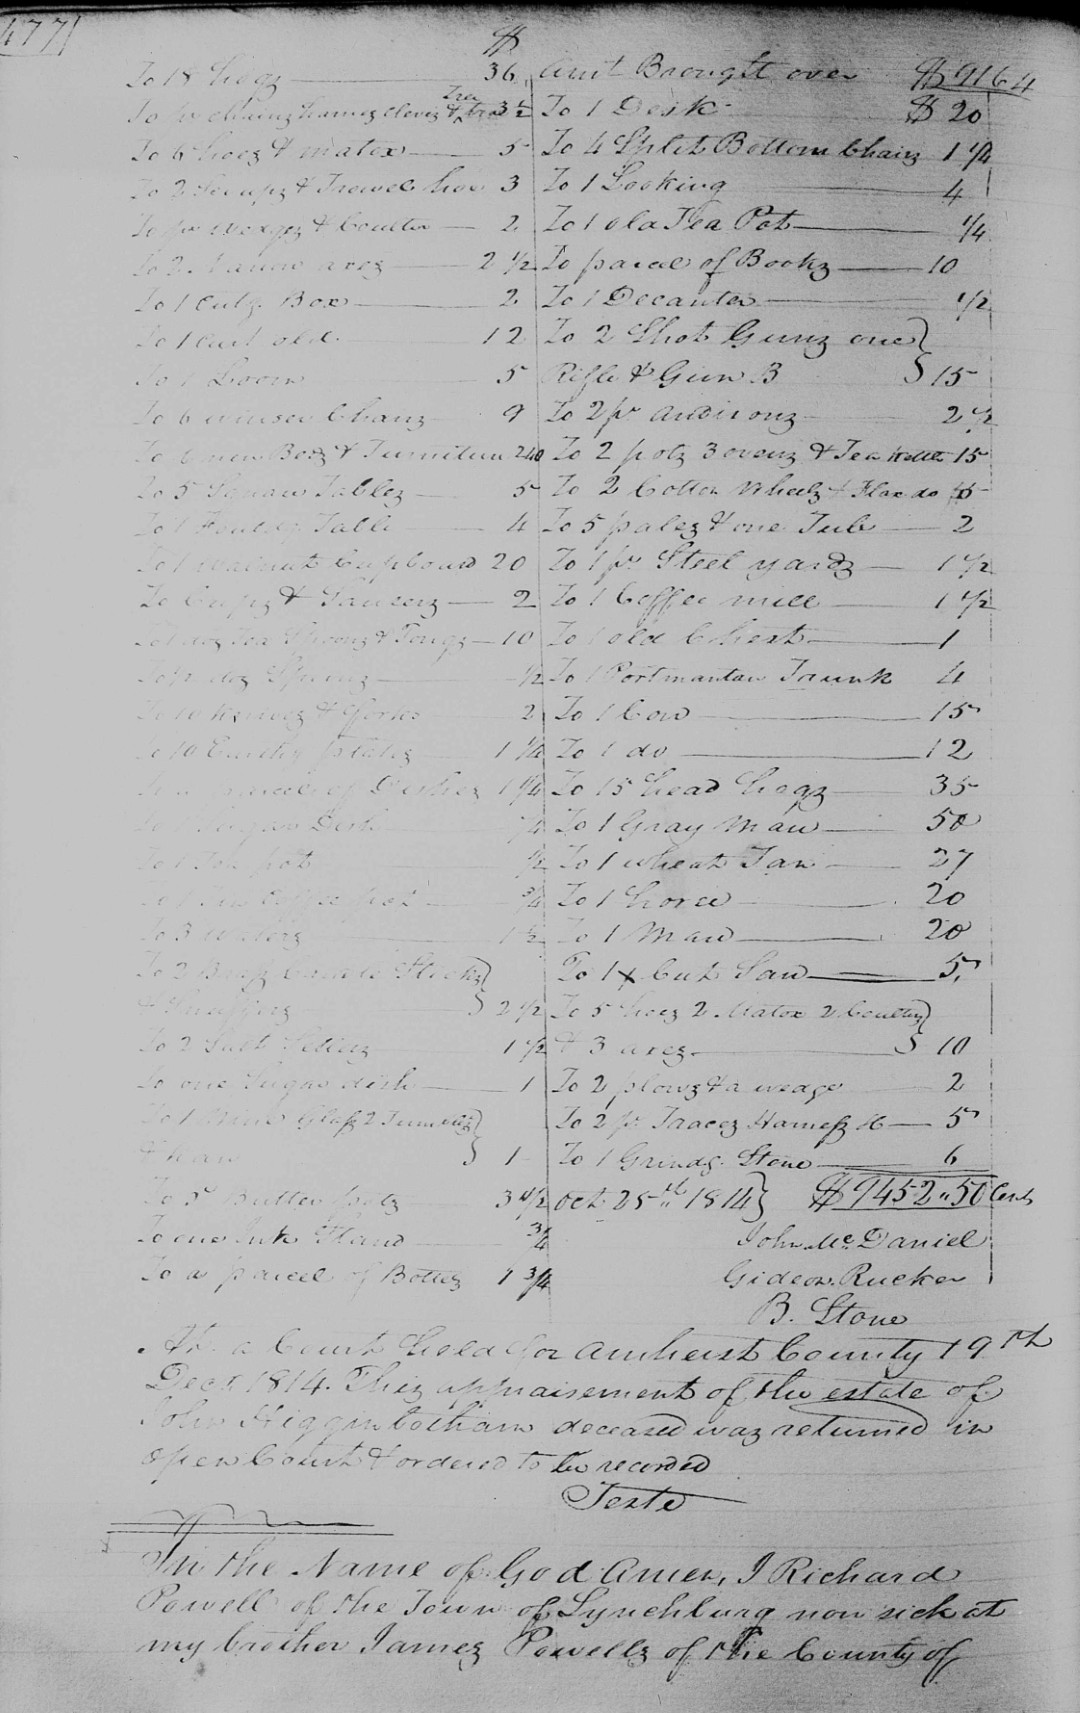 477
$
To 18 hogz 36
To 6 hoez & matox 5
To 2 Scrapz & Trowel hoe 3
To pr wedgez & Coulter 2
To 2 narrow axez 2 1/2
To 1 Cutg. Box 2
To 1 cart old 12
To 1 Loom 5
To 6 winsor Chairz 9
To 6 new Bedz & Furniture 240
To 5 Tablez 5
To 1 Table 4
To 1 walnut Cupboard 20
To Cupz & Saucerz 2
To 1 doz Tea Spoonz & Tongz 10
To 1/2 doz Spoonz 1/2
To 10 knivez & forks 2
To 10 Earthn platez 1 1/4
To a parcel of Dishez 1 1/4
Dish 1/4
To 1 pot 1/2
To 1 Tin Coffee pot 3/4
To 3 1 1/2
To 2 Brass Candle Stickz }
& Snufferz } 2 1/2
To 2 Salt Sellerz 1 1/2
To one Sugar dish 1
To 1 Glass 2 Tumblerz }
} 1
To 5 Butter potz 3 1/2
To one Ink Stand 3/4
To a parcel of Bottlez 1 3/4
Amt Brought over $9164
To 1 Desk $20
To 4 Split Bottom Chairz 1 1/4
To 1 Looking 4
To 1 old Tea Pot 1/4
To parcel of Bookz 10
To 1 Decanter 1/2
To 2 Shot Gunz one }
Rifle & Gun B } 15
To 2 pr andironz 2 1/2
To 2 potz 3 ovenz & Tea kettle 15
To 2 Cotton Wheelz & Flax do 5
To 5 palez & one Tub 2
To 1 pr Steel yardz 1 1/2
To 1 Coffee mill 1 1/2
To 1 old Chest 1
To 1 Portmantau Trunk 4
To 1 Cow 15
To 1 do 12
To 15 head hogz 35
To 1 Gray Mare 50
To 1 wheat Fan 27
To 1 horse 20
To 1 Mare 20
To 1 x Cut Saw 5
To 5 hoez 2 Matox 2 Coulterz }
& 3 axez } 10
To 2 plowz & a wedge 2
To 2 pr Tracez Hamess &c 5
To 1 Grindg. Stone 6
Oct 25th 1814 } $9452"50 Cents
John McDaniel
Gideon Rucker
B. Stone
At a Court held for Amherst County 19th
Decr 1814. This appraisement of the estate of
John Higginbotham deceased waz returned in
open Court & ordered to be recorded
Teste
In the Name of God Amen, I Richard
Powell of the Town of Lynchburg now sick at
my brother Jamez Powellz of the County of